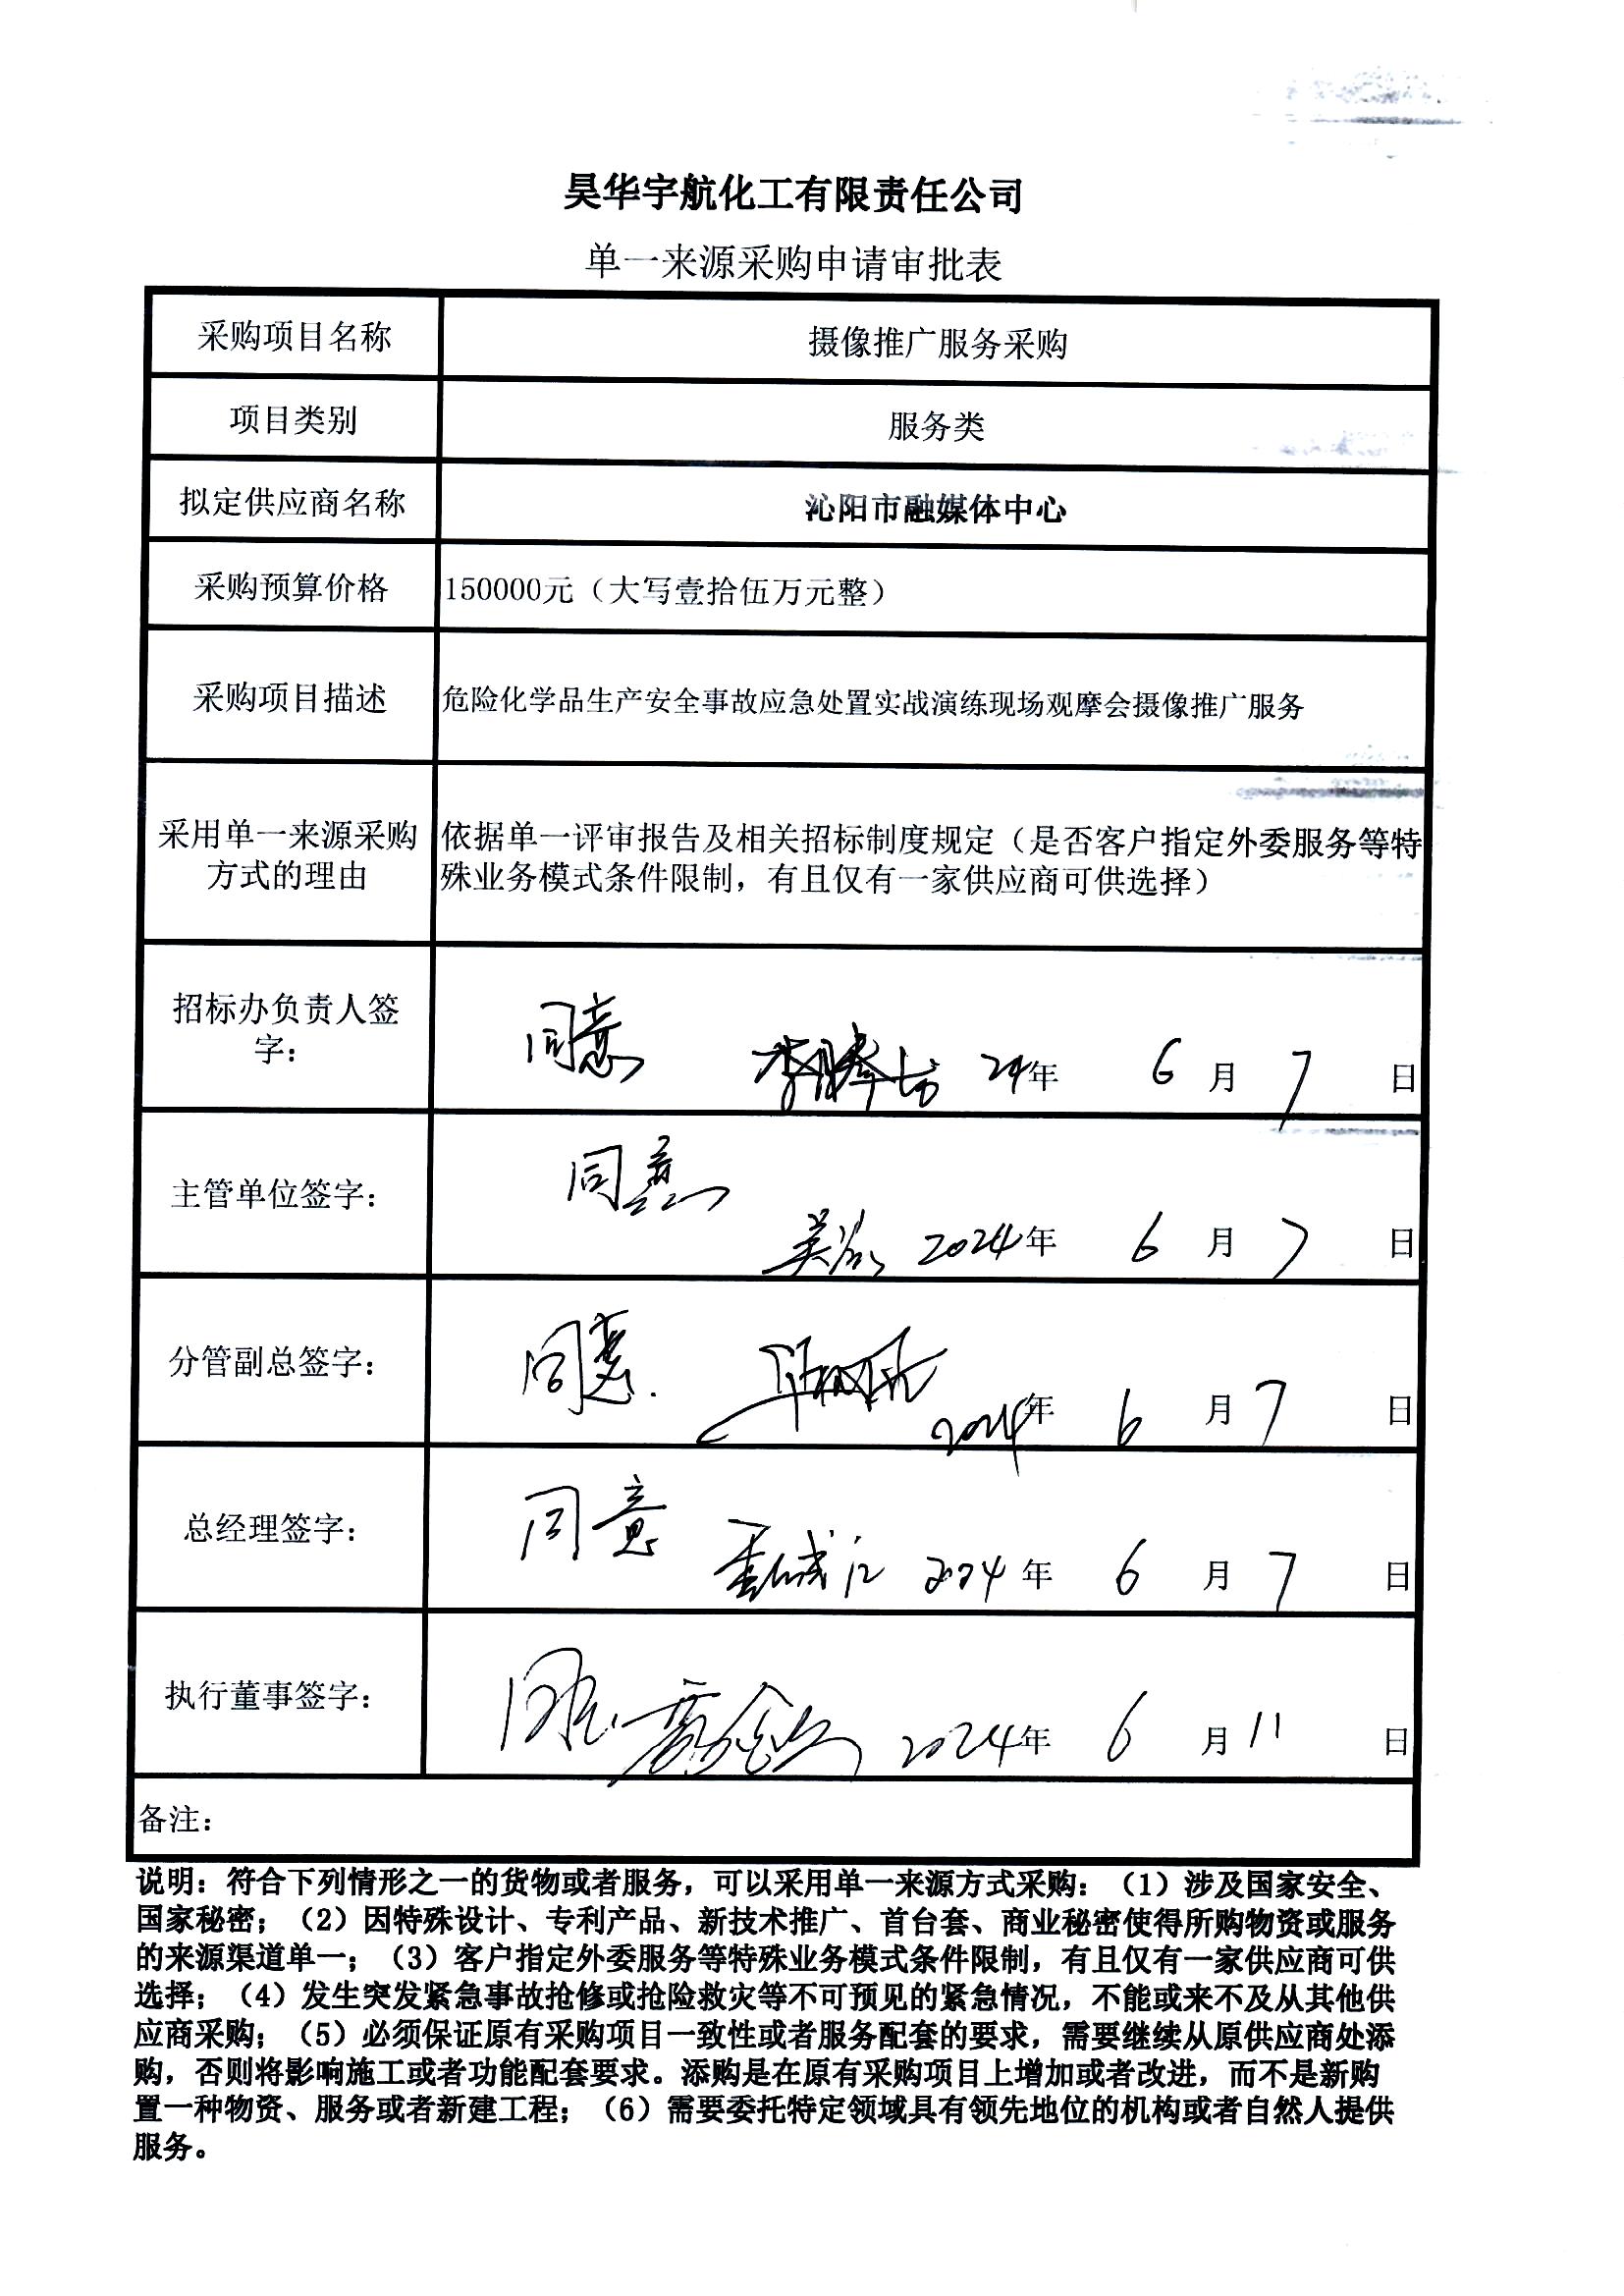 昊华宇航化工有限责任公司
单一来源采购申请审批表
采购项目名称
摄像推广服务采购
项目类别
服务类
拟定供应商名称
沁阳市融媒体中心
采购预算价格
150000元（大写壹拾伍万元整）
采购项目描述
危险化学品生产安全事故应急处置实战演练现场观摩会摄像推广服务
采用单一来源采购
方式的理由
依据单一评审报告及相关招标制度规定（是否客户指定外委服务等特
殊业务模式条件限制，有且仅有一家供应商可供选择）
招标办负责人签
字：
同意
24年 6 月 7 日
主管单位签字：
同意
2024年 6 月 7 日
分管副总签字：
同意.
2024年 6 月 7 日
总经理签字：
同意
2024年 6 月 7 日
执行董事签字：
同意
2024年 6 月 11 日
备注：
说明：符合下列情形之一的货物或者服务，可以采用单一来源方式采购：（1）涉及国家安全、
国家秘密；（2）因特殊设计、专利产品、新技术推广、首台套、商业秘密使得所购物资或服务
的来源渠道单一；（3）客户指定外委服务等特殊业务模式条件限制，有且仅有一家供应商可供
选择；（4）发生突发紧急事故抢修或抢险救灾等不可预见的紧急情况，不能或来不及从其他供
应商采购；（5）必须保证原有采购项目一致性或者服务配套的要求，需要继续从原供应商处添
购，否则将影响施工或者功能配套要求。添购是在原有采购项目上增加或者改进，而不是新购
置一种物资、服务或者新建工程；（6）需要委托特定领域具有领先地位的机构或者自然人提供
服务。